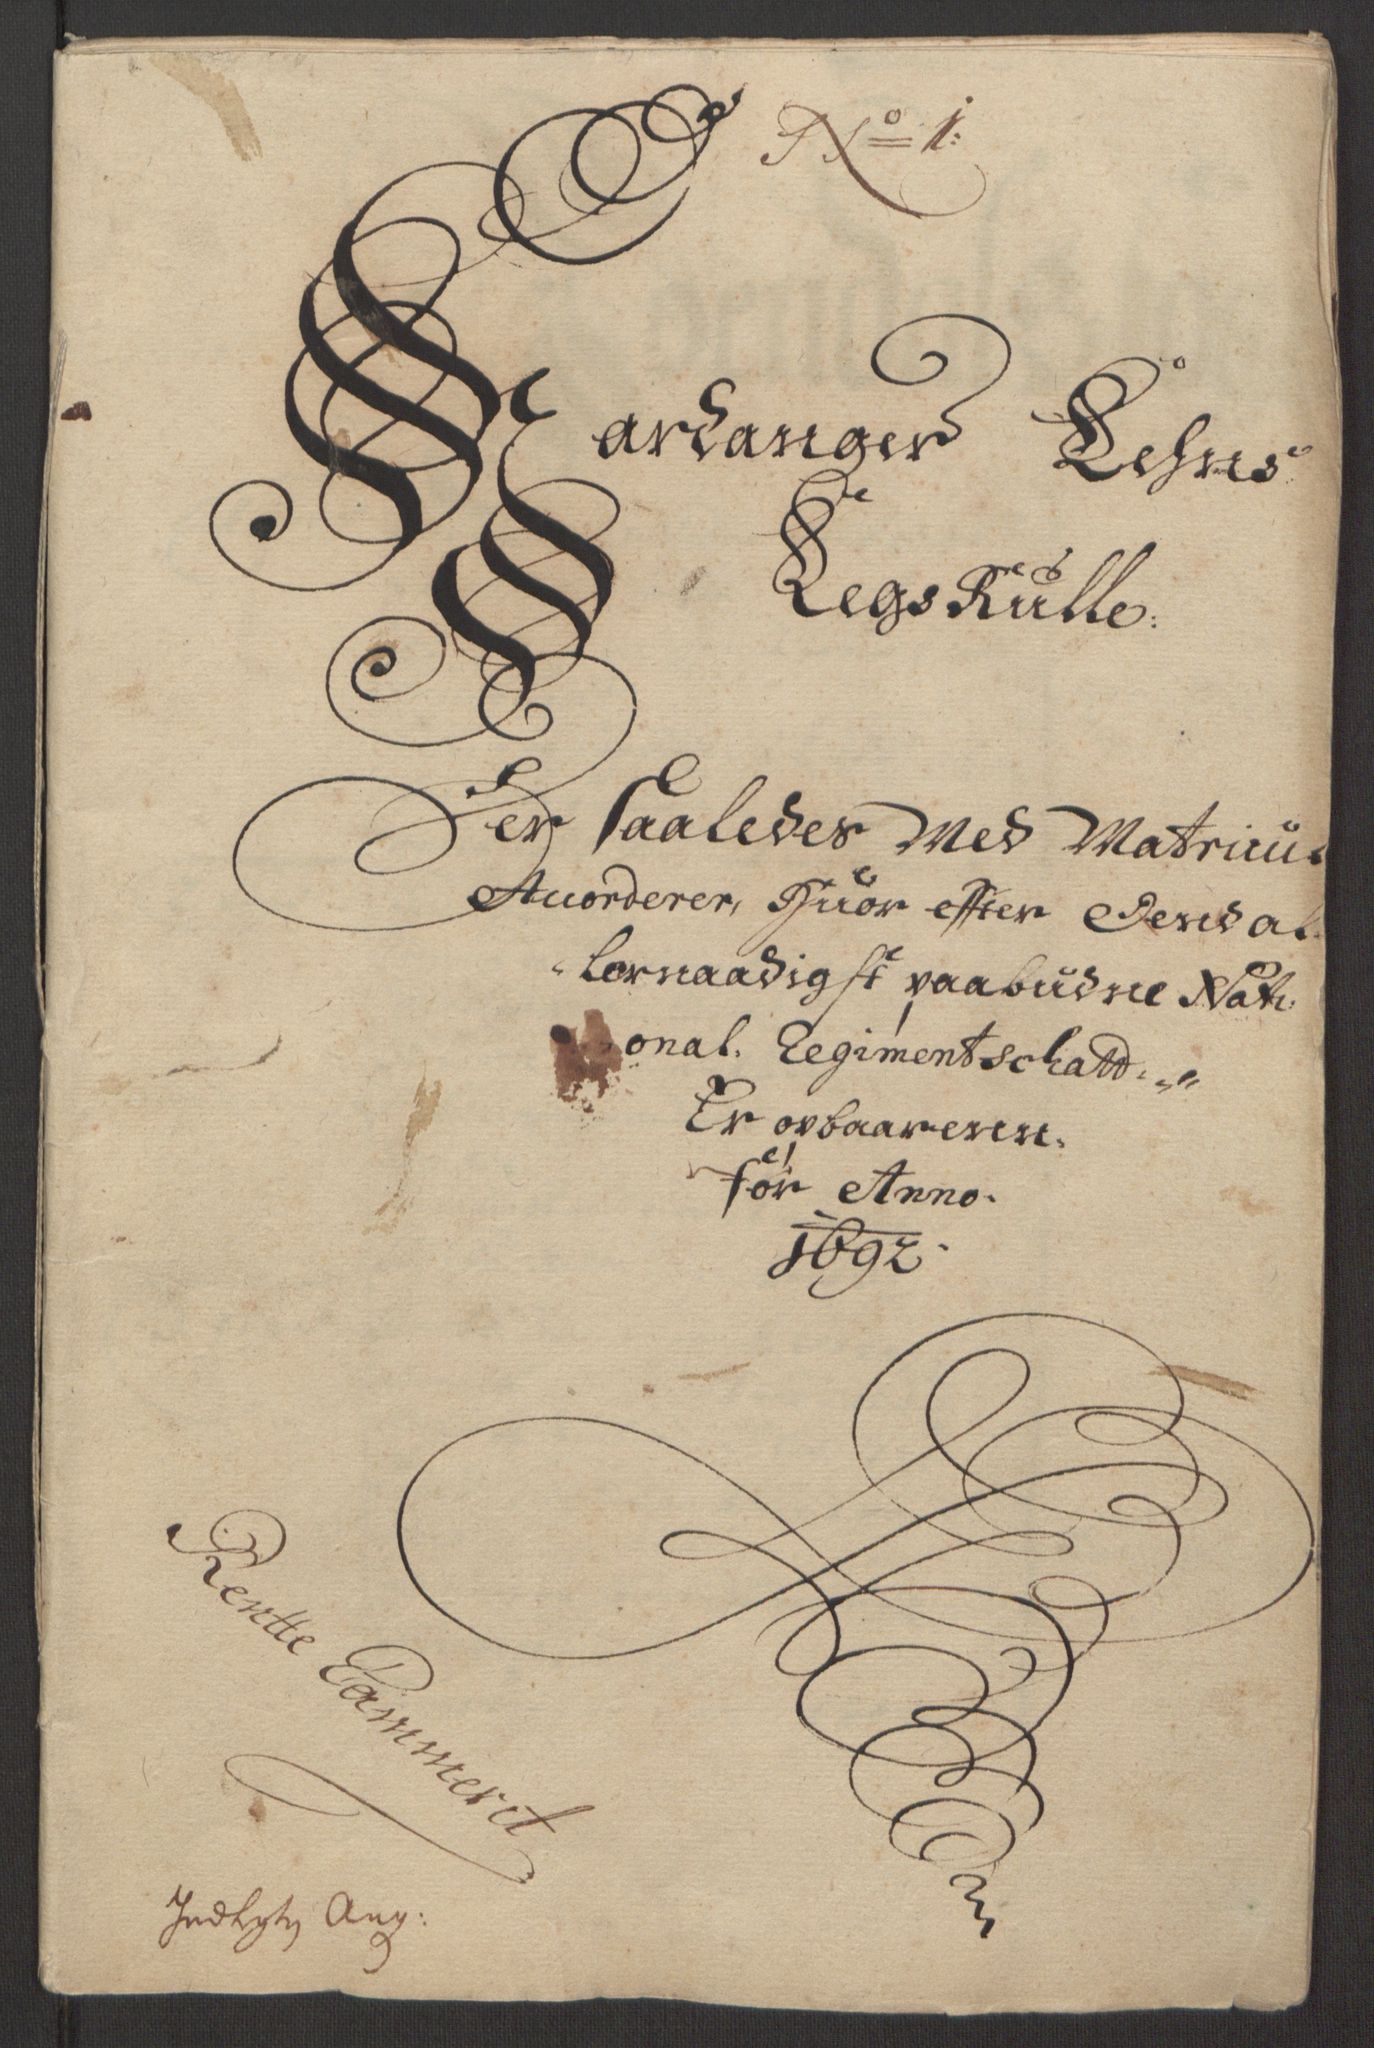 No 1:
Hardanger Lehns
Legs Rulle.
Der saaledes Med Matricul
Accorderer, Huor effter Dend al,
lernaadigst paabudne Nati
onal. Regimentschatt
Er opbaarenn.
for Anno.
1692.
Rentte Cammerit
Indtegts Ang: